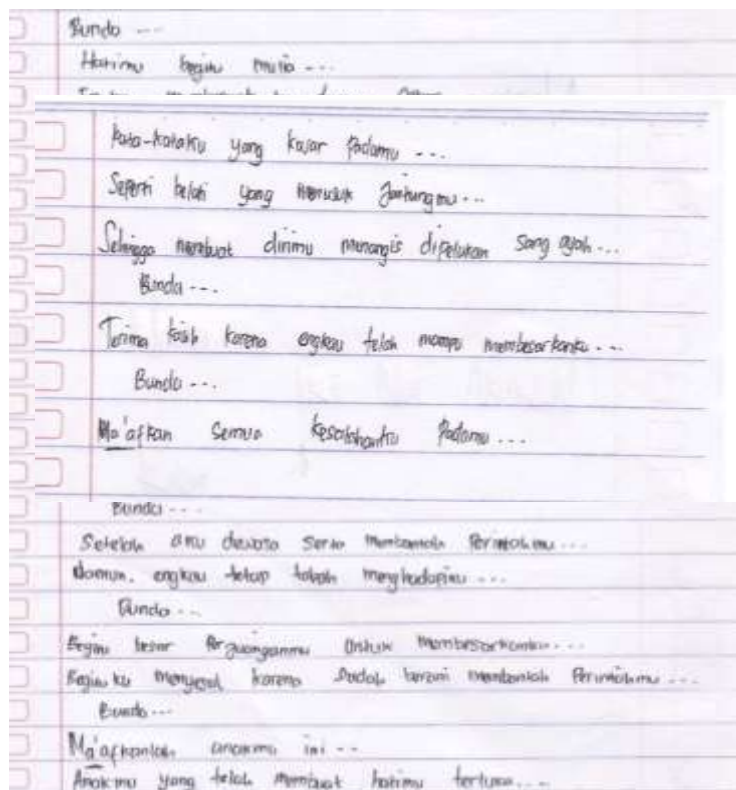 Bunda ...
Hatimu begitu mulia ...
Kata-kataku yang kasar Padamu ...
Seperti belati yang menusuk Jantungmu ...
Sehingga membuat dirimu menangis dipelukan sang ayah ...
Bunda ...
Terima kasih karena engkau telah mampu membesarkanku ...
Bunda ...
Ma'afkan semua kesalahanku Padamu ...
Bunda ...
Setelah aku dewasa serta membantah Perintahmu ...
Namun, engkau tetap tabah menghadapiku ...
Bunda ...
Begitu besar Perjuanganmu Untuk membesarkanku ...
Begitu ku menyesal karena Sudah berani membantah Perintahmu ...
Bunda ...
Ma'afkanlah anakmu ini ...
Anakmu yang telah membuat hatimu terluka ...